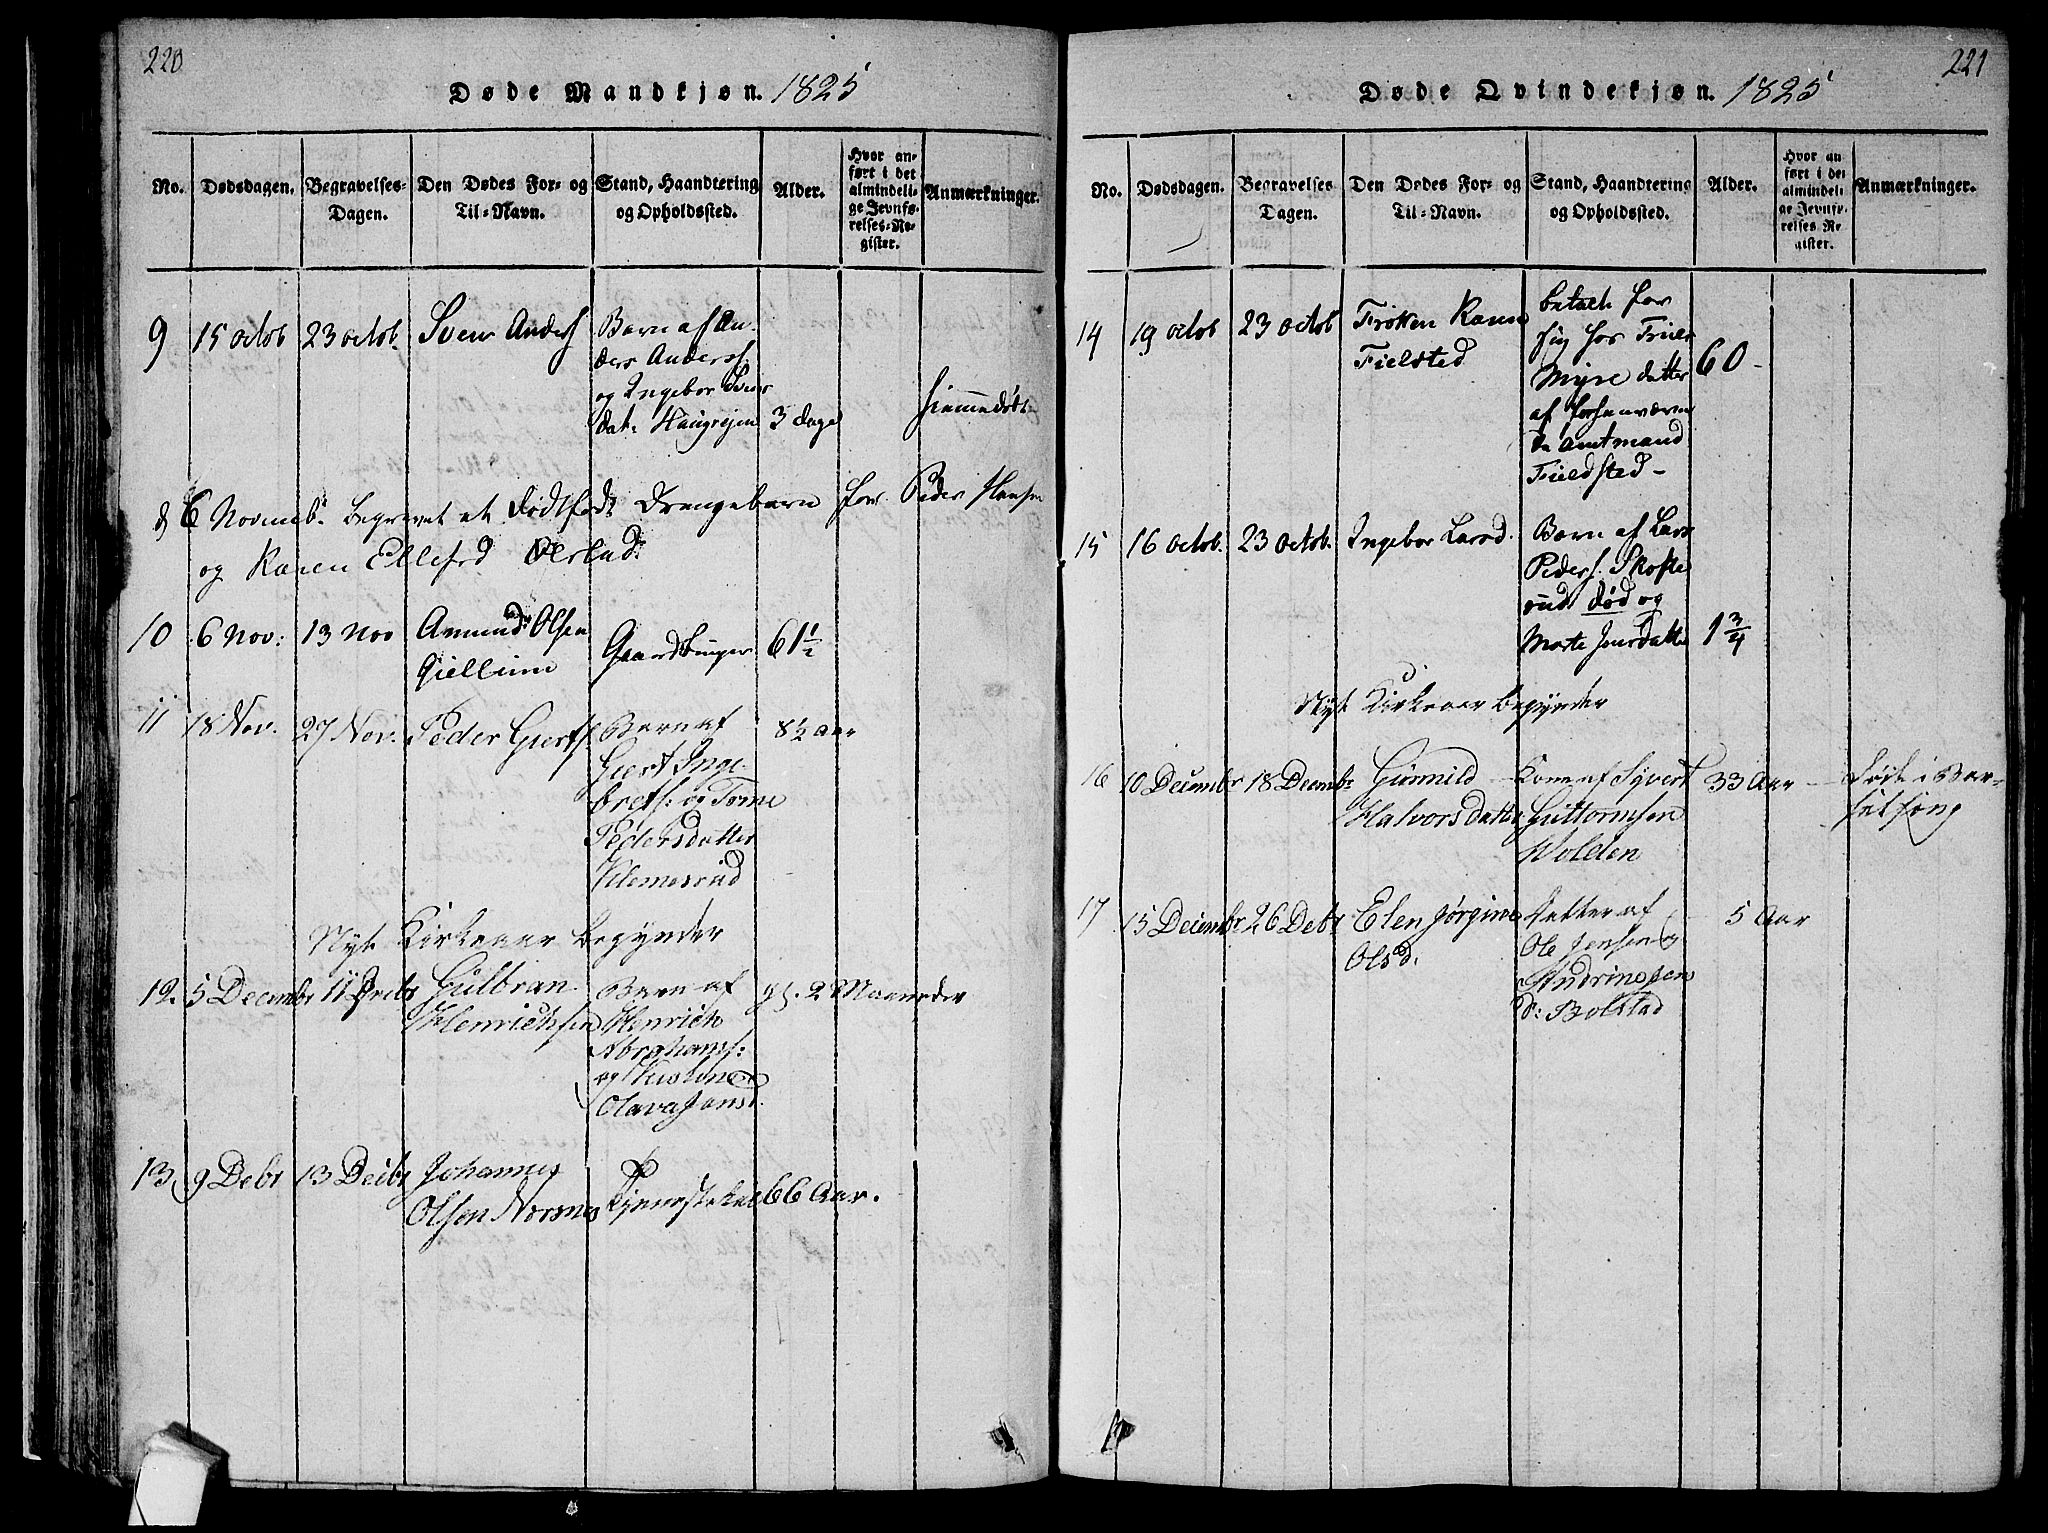 220
Døde Mandkjøn. 1825
No.
Dødsdagen.
Begravelses-
Dagen.
Den Dødes For- og
Til-Navn.
Stand, Haandtering
og Opholdssted.
Alder.
Hvor an-
ført i det
almindeli-
ge Jevnfø-
relses-Re-
gister.
Anmærkninger.
9
15 octob
23 octob.
Svend Anders
Barn af An-
ders Anders
og Ingebor Svens
dat: Haugrejen
3 dage
hiemmedøbt
d 6 Novemb. begravet et dødtfødt Drengebarn for Peder Hansen
og Karen Ellefsd Ølstad
10
6 Nov:
13 Nov
Amund Olsen
Giellum
Gaardbruger
61 1/2
11
18 Nov.
27 Nov.
Peder Giertsf
Barn af
Giert Inge
bretf: og Torne
Pedersdatter
Klemesrud
8 1/2 Aar
Nyt Kirkeaar begynder
12.
5 Decembr
11 Decbr
Gulbran
Henrichsen
Barn af
Henrich
Abrahams:
og
Olava Jensd.
2 Maaneder
13
9 Debr
13 Decbr
Johannes
Olsen Norsnes
Tjenestekarl
66 Aar.
221
Døde Qvindekjøn. 1825
No.
Dødsdagen.
Begravelses
Dagen.
Den Dødes For- og
Til-Navn.
Stand, Haandtering
og Opholdssted.
Alder.
Hvor an
ført i det
almindeli
ge Jevnfø-
relses Re-
gister.
Anmærkninger.
14
19 octob
23 octob
Frøken Karen
Fielsted
betalt for
sig hos
Myre datter
af forhenværen
de Amtmand
Fieldsted-
60-
15
16 octob.
23 octob.
Ingebor Larsd.
Barn af Lars
Peders. Skofte
rud død og
Marte Jensdatter
1 3/4
Nyt Kirkeaar begynder
16
10 Decembr
18 Decembr
Gunnild
Halvorsdatter
Kone af Syvert
Guttormsen
Wolden
33 Aar
Døde i Bar-
selseng
17
15 Decembr
26 Debr
Elen Jørgine
Olsd.
Datter af
Ole Jensen og
Andrine Jens
d: Bolstad
5 Aar